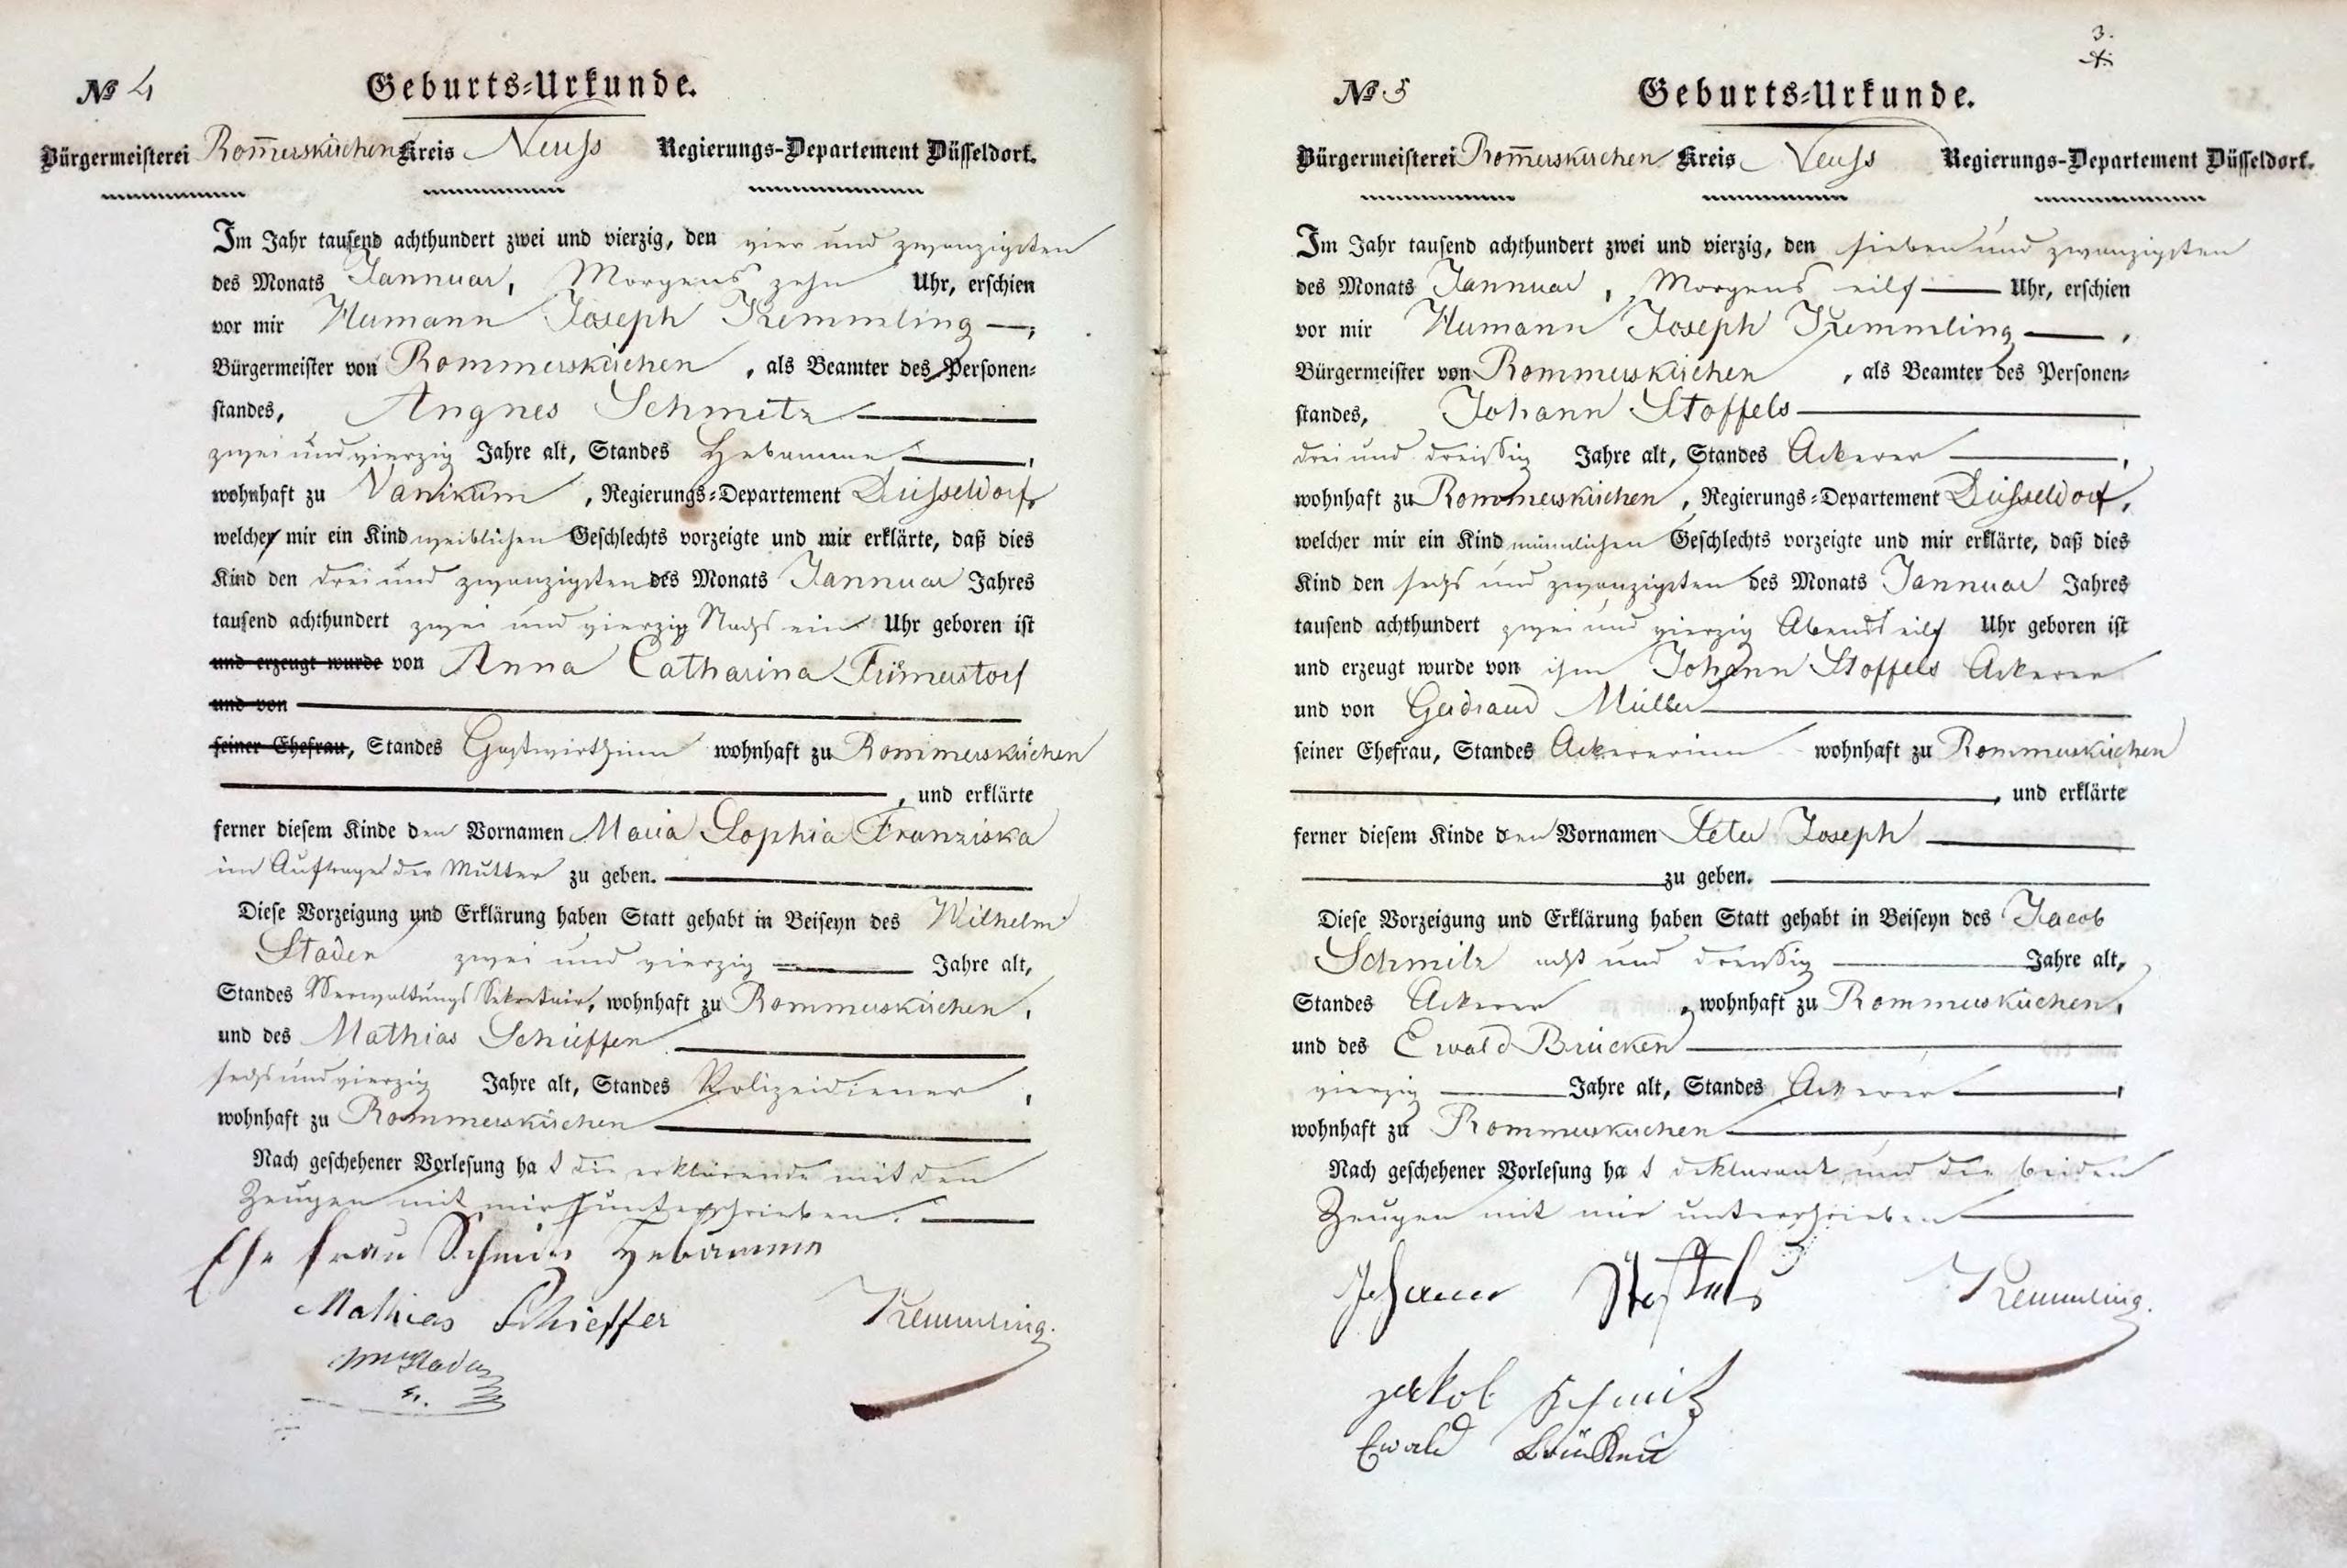 № 4
Geburts-Urkunde.
Bürgermeisterei Rom̅erskirchen Kreis Neuss Regierungs-Departement Düsseldorf.
Im Jahr tausend achthundert zwei und vierzig, den vier und zwanzigsten
des Monats Jannuar, Morgens zehn Uhr, erschien
vor mir Hermann Joseph Kremmling —,
Bürgermeister von Rommerskirchen, als Beamter des Personen-
standes, Angnes Schmitz
zwei und vierzig Jahre alt, Standes Hebamme,
wohnhaft zu Vanikum, Regierungs-Departement Düsseldorf,
welche mir ein Kind weiblichen Geschlechts vorzeigte und mir erklärte, daß dies
Kind den drei und zwanzigsten des Monats Jannuar Jahres
tausend achthundert zwei und vierzig Nachts ein Uhr geboren ist
und erzeugt wurde von Anna Catharina
und von
seiner Ehefrau, Standes Gastwirthinn wohnhaft zu Rommerskirchen
, und erklärte
ferner diesem Kinde den Vornamen Maria Sophia Franziska
im Auftrage der Mutter zu geben.
Diese Vorzeigung und Erklärung haben Statt gehabt in Beiseyn des Wilhelm
Staden zwei und vierzig Jahre alt,
Standes Verwaltungs Sekretair, wohnhaft zu Rommerskirchen,
und des Mathias Schieffer
sechs und vierzig Jahre alt, Standes Polizeidiener,
wohnhaft zu Rommerskirchen
Nach geschehener Vorlesung hat die erklärende mit den
Zeugen mit mir unterschrieben.
Ehe frau Schmitz Hebamme
Mathias Schieffer Kremmling.
Wm Staden
3.
№ 5
Geburts-Urkunde.
Bürgermeisterei Rom̅erskirchen Kreis Neuss Regierungs-Departement Düsseldorf.
Im Jahr tausend achthundert zwei und vierzig, den sieben und zwanzigsten
des Monats Jannuar, Morgens eilf — Uhr, erschien
vor mir Hermann Joseph Kremmling —,
Bürgermeister von Rommerskirchen, als Beamter des Personen-
standes, Johann Stoffels
drei und dreißig Jahre alt, Standes Ackerer,
wohnhaft zu Rommerskirchen, Regierungs-Departement Düsseldorf,
welcher mir ein Kind männlichen Geschlechts vorzeigte und mir erklärte, daß dies
Kind den sechs und zwanzigsten des Monats Jannuar Jahres
tausend achthundert zwei und vierzig Abends eilf Uhr geboren ist
und erzeugt wurde von ihm Johann Stoffels Ackerer
und von Gerdraud Müller
seiner Ehefrau, Standes Ackererinn wohnhaft zu Rommerskirchen
, und erklärte
ferner diesem Kinde den Vornamen Peter Joseph
zu geben.
Diese Vorzeigung und Erklärung haben Statt gehabt in Beiseyn des Jacob
Schmitz acht und dreißig Jahre alt,
Standes Ackerer, wohnhaft zu Rommerskirchen,
und des Ewald Brücken
vierzig Jahre alt, Standes Ackerer,
wohnhaft zu Rommerskirchen
Nach geschehener Vorlesung hat deklarant und die beiden
Zeugen mit mir unterschrieben
Johann Stoffels Kremmling.
Jakob Schmitz
Ewald Brücken